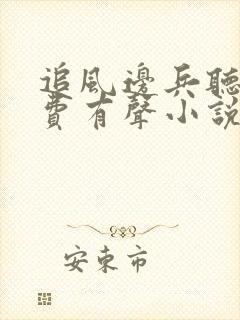 追風邊兵聽
費有聲小說
安東市